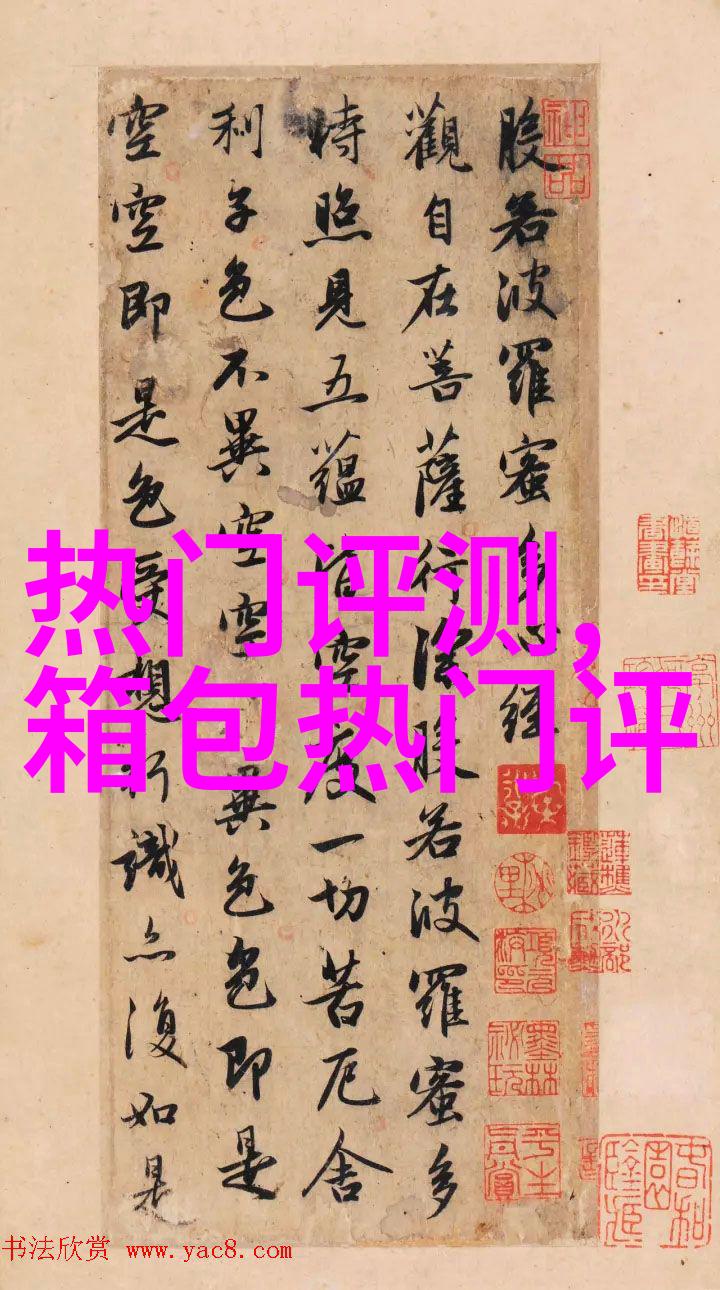 般若波羅蜜多心經
觀自在菩薩行深般若波羅蜜多
時照見五蘊皆空度一切苦厄舍
利子色不異空空不異色色即是
空空即是色受想行識亦復如是
热门评测,
箱包热门评
神品
墨林秘玩
平生真賞
書法欣賞 www.yac8.com